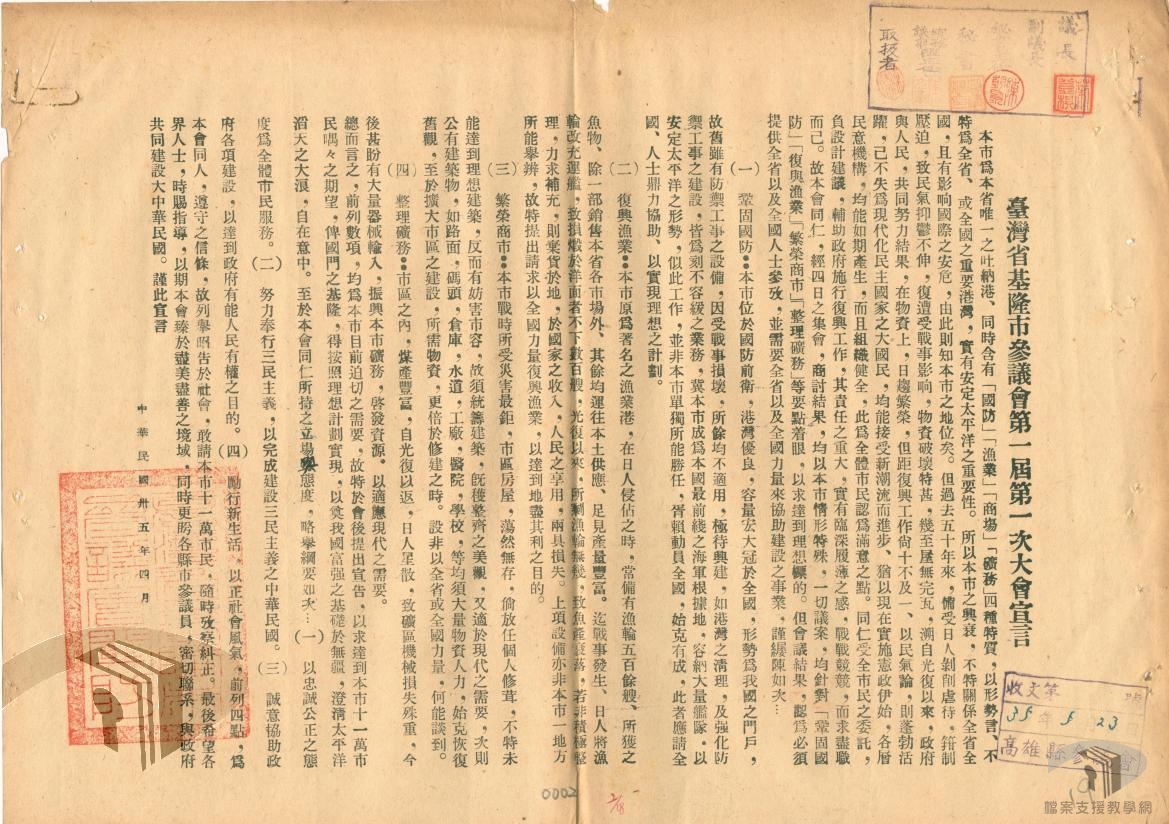 臺灣省基隆市參議會第一屆第一次大會宣言
本市爲本省唯一之吐納港、同時含有「國防」「漁業」「商場」「礦務」四種特質，以形勢言、不
特爲全省、或全國之重要港灣，實有安定太平洋之重要性。所以本市之興衰，不特關係全省全
國，且有影响國際之安危，由此則知本市之地位矣。但過去五十年來，備受日人剝削虐待，箝制
壓迫，致民氣抑鬱不伸，復遭受戰事影响，物資破壞特甚，幾至屋無完瓦，溯自光復以來，政府
與人民，共同努力結果，在物資上，日趨繁榮，但距復興工作尙十不及一、以民氣論，則蓬勃活
躍，已不失爲現代化民主國家之大國民，均能接受新潮流而進步、猶以現在實施憲政伊始，各層
民意機構，均能如期產生，而且組織健全，此爲全體市民認爲滿意之點。同仁受全市民之委託，
負設計建議，輔助政府施行復興工作，其責任之重大，實有臨深履薄之感，戰戰競競，而求盡職
而己。故本會同仁，經四日之集會，商討結果，均以本市情形特殊，一切議案，均針對「鞏固國
防」「復與漁業」「繁榮商市」「整理礦務」等要點着眼，以求達到理想標的。但會議結果，認爲必須
提供全省以及全國人士參攷，並需要全省以及全國力量來協助建設之事業，謹縷陳如次…
（一）　鞏固國防：本市位於國防前衛，港灣優良，容量宏大冠於全國，形勢爲我國之門戶，
故舊雖有防禦工事之設備，因受戰事損壞，所餘均不適用，極待興建，如港灣之清理，及强化防
禦工事之建設，皆爲刻不容緩之業務，冀本市成爲本國最前綫之海軍根據地，容納大量艦隊，以
安定太平洋之形勢，似此工作，並非本市單獨所能勝任，胥賴動員全國，始克有成，此者應請全
國、人士鼎力協助、以實現理想之計劃。
（二）　復興漁業：本市原爲著名之漁業港，在日人侵佔之時，常備有漁輪五百餘艘、所獲之
魚物、除一部銷售本省各市場外、其餘均運往本土供應、足見產量豐富。迄戰事發生、日人將漁
輪改充運艦，致損燬於洋面者不下數百艘，光復以來，所剩漁輪無幾，致魚產衰落，若非積極整
理，力求補充，則棄貨於地，於國家之收入，人民之享用，兩具損失。上項設備亦非本市一地方
所能舉辨，故特提出請求以全國力量復興漁業，以達到地盡其利之目的。
（三）　繁榮商市：本市戰時所受災害最鉅，市區房屋，蕩然無存，倘放任個人修葺，不特未
能達到理想建築，反而有妨害市容，故須統籌建築，旣穫整齊之美觀，又適於現代之需要，次則
公有建築物，如路面，碼頭，倉庫，水道，工廠，醫院，學校，等均須大量物資人力，始克恢復
舊觀，至於擴大市區之建設，所需物資，更倍於修建之時。設非以全省或全國力量，何能談到。
（四）　整理礦務：市區之內，煤產豐富，自光復以返，日人星散，致礦區機械損失殊重，今
後甚盼有大量器械輸入，振興本市礦務，啓發資源。以適應現代之需要。
總而言之，前列數項，均爲本市目前迫切之需要，故特於會後提出宣告，以求達到本市十一萬市
民喁々之期望，俾國門之基隆，得按照理想計劃實現，以奠我國富强之基礎於無疆，澄清太平洋
滔天之大浪，自在意中。至於本會同仁所持之立場與態度，略舉綱要如次…（一）　以忠誠公正之態
度爲全體市民服務。（二）　努力奉行三民主義，以完成建設三民主義之中華民國。（三）　誠意協助政
府各項建設，以達到政府有能人民有權之目的。（四）　勵行新生活，以正社會風氣，前列四點，爲
本會同人，遵守之信條，故列舉昭告於社會，敢請本市十一萬市民，隨時攷察糾正。最後希望各
界人士，時賜指導，以期本會臻於盡美盡善之境域，同時更盼各縣市參議員，密切聯系，與政府
共同建設大中華民國。謹此宣言
中華民國卅五年四月
議長
副議長
秘書
取扱者
收文第　號
35年5　23
高雄縣參　會
19
0002
檔案支援教學網